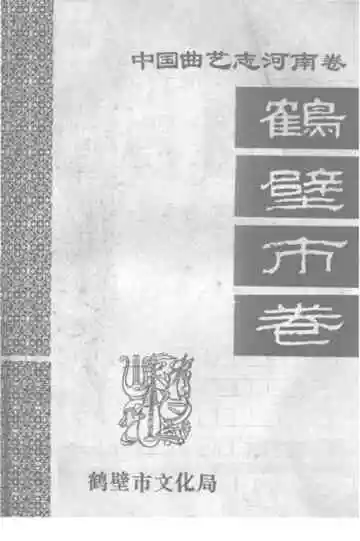 中国曲艺志河南卷
鹤壁市卷
鹤壁市文化局